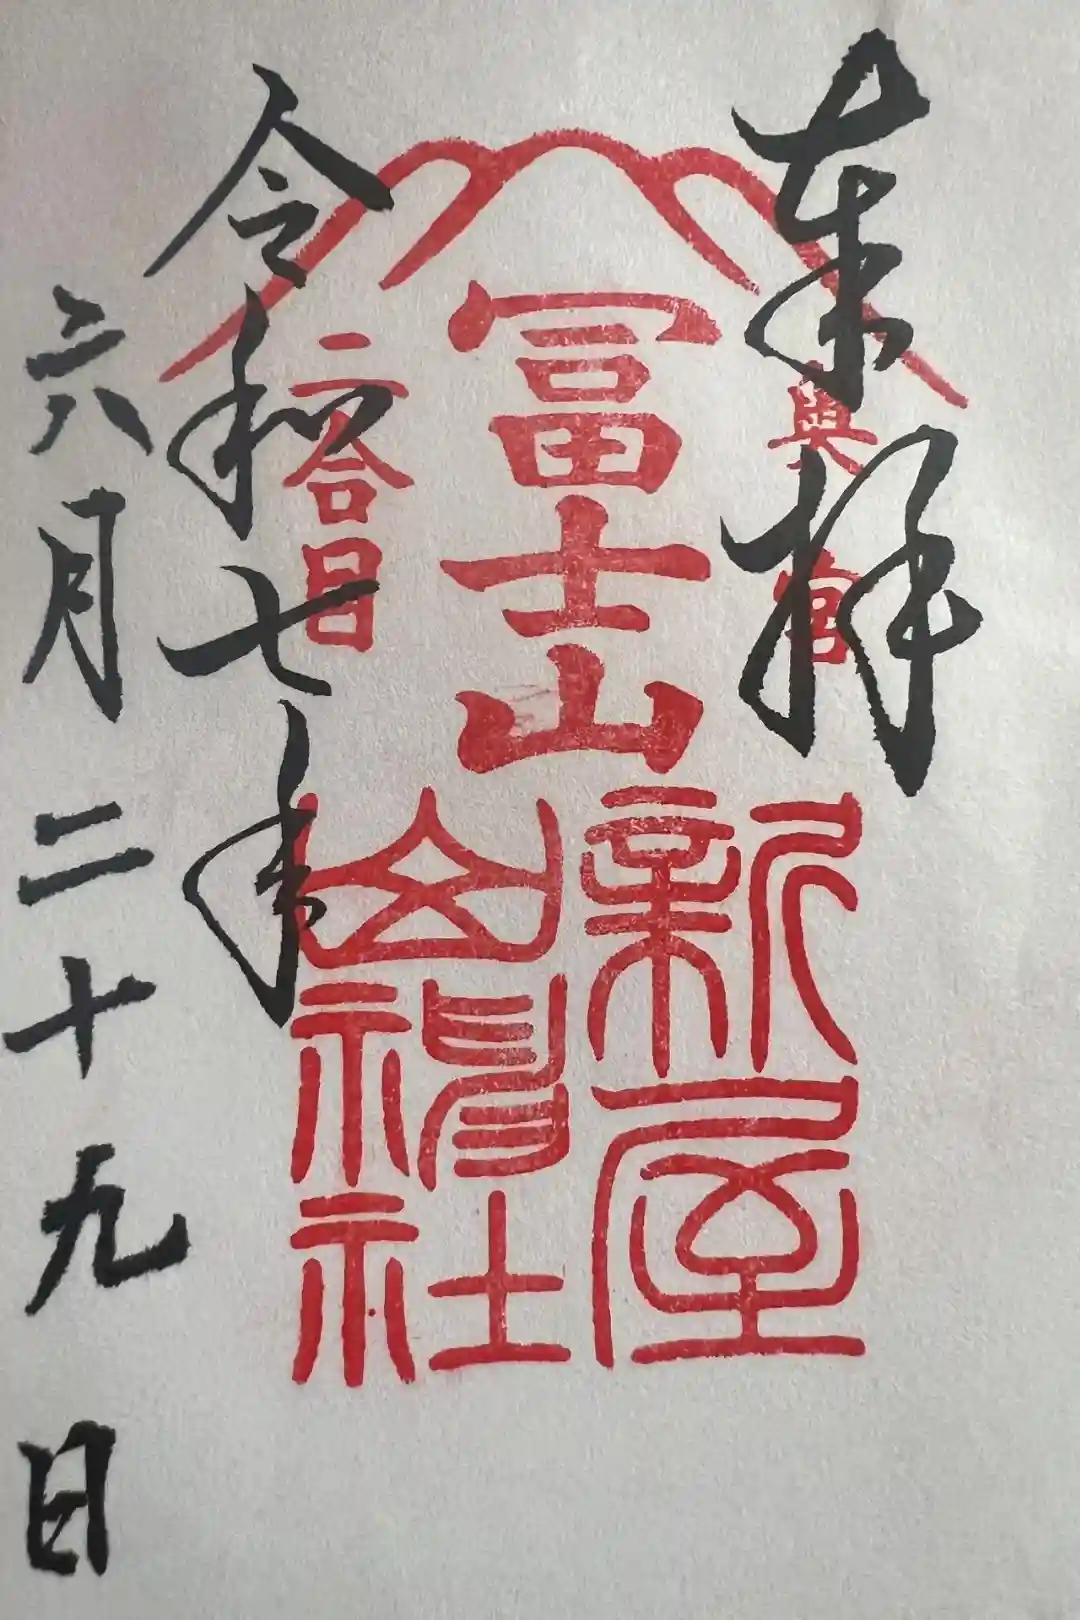 奉拝
奥宮
冨士山
二合目
新屋
山神社
令和七年
六月二十九日